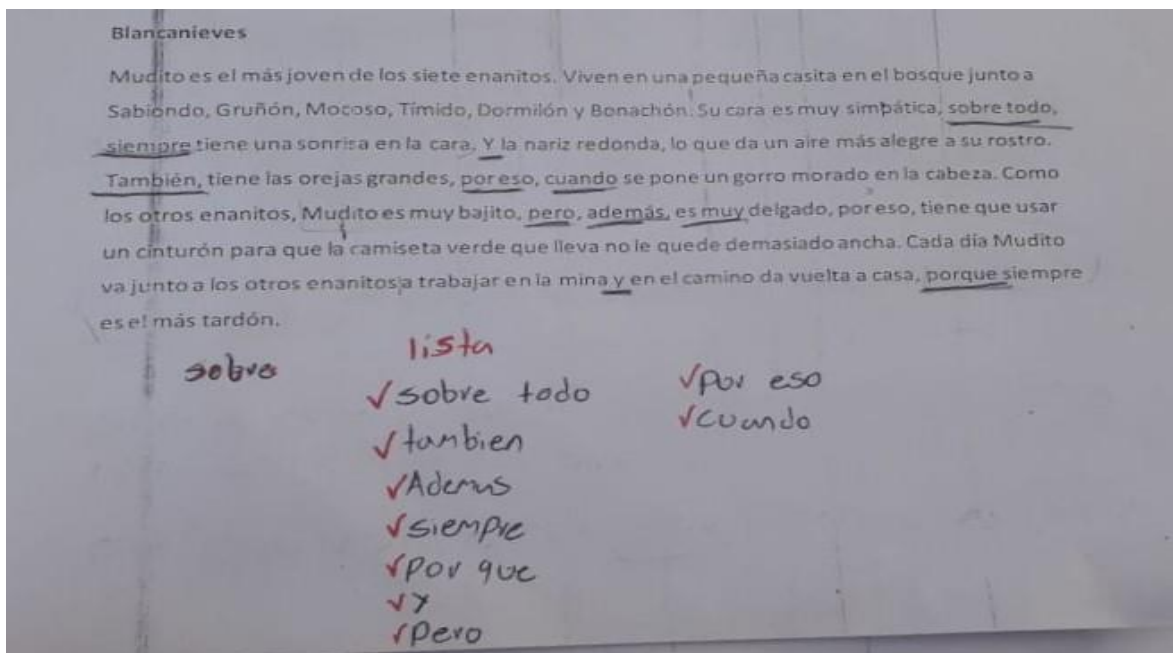 Blancanieves
Mudito es el más joven de los siete enanitos. Viven en una pequeña casita en el bosque junto a
Sabiondo, Gruñón, Mocoso, Tímido, Dormilón y Bonachón. Su cara es muy simpática, sobre todo,
siempre tiene una sonrisa en la cara. Y la nariz redonda, lo que da un aire más alegre a su rostro.
También, tiene las orejas grandes, por eso, cuando se pone un gorro morado en la cabeza. Como
los otros enanitos, Mudito es muy bajito, pero, además, es muy delgado, por eso, tiene que usar
un cinturón para que la camiseta verde que lleva no le quede demasiado ancha. Cada día Mudito
va junto a los otros enanitos a trabajar en la mina y en el camino da vuelta a casa, porque siempre
es el más tardón.
sobre
lista
✓sobre todo
✓tambien
✓Ademas
✓siempre
✓por que
✓y
✓pero
✓por eso
✓cuando